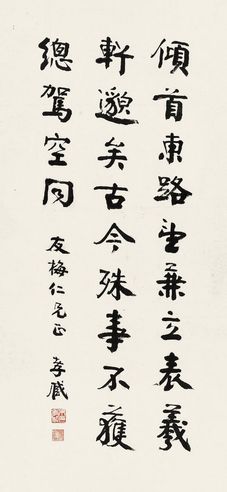 傾首東路望兼立表羲
軒邈矣古今殊事不獲
總駕空同
友梅仁兄正 孝臧